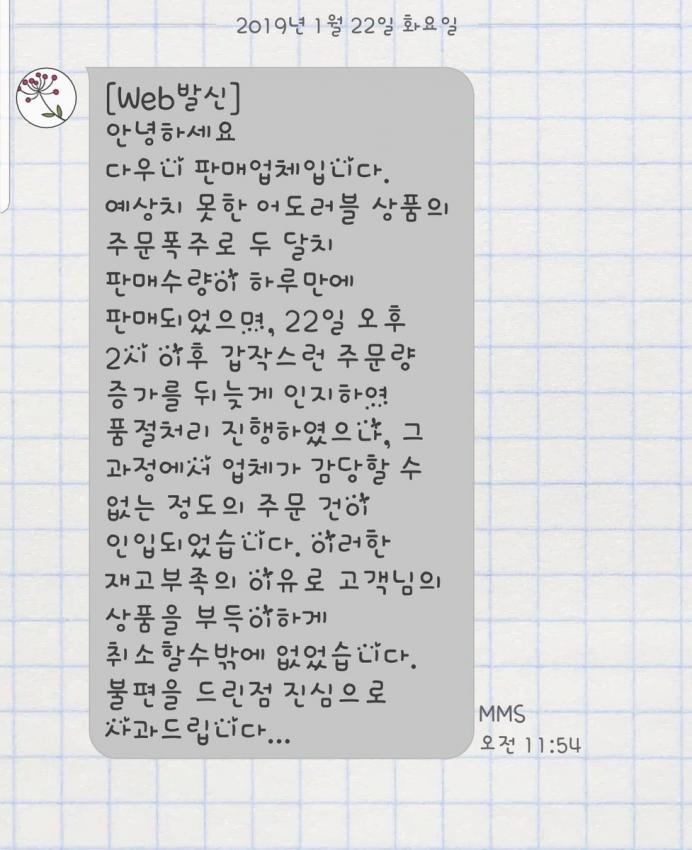 2019년 1월 22일 화요일
[Web발신]
안녕하세요
다우니 판매업체입니다.
예상치 못한 어도러블 상품의
주문폭주로 두 달치
판매수량이 하루만에
판매되었으며, 22일 오후
2시 이후 갑작스런 주문량
증가를 뒤늦게 인지하여
품절처리 진행하였으나, 그
과정에서 업체가 감당할 수
없는 정도의 주문 건이
인입되었습니다. 이러한
재고부족의 이유로 고객님의
상품을 부득이하게
취소할수밖에 없었습니다.
불편을 드린점 진심으로
사과드립니다...
MMS
오전 11:54